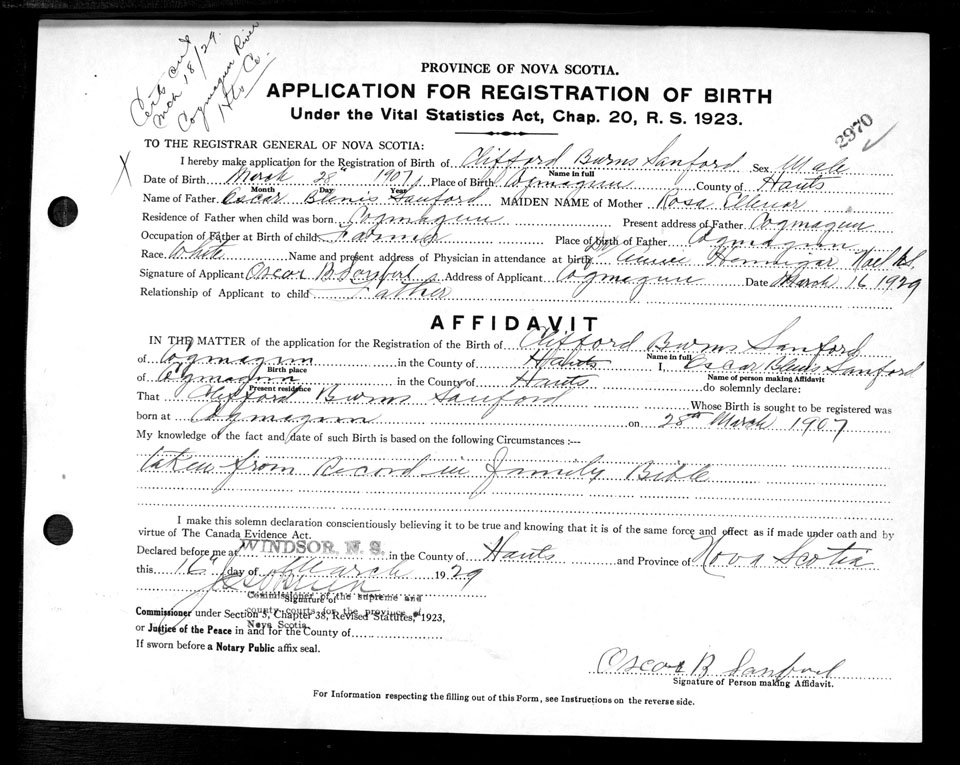 Certs out
Mch 18/29.
Cogmagun River
Hts Co.
PROVINCE OF NOVA SCOTIA.
APPLICATION FOR REGISTRATION OF BIRTH
Under the Vital Statistics Act, Chap. 20, R. S. 1923.
2970
TO THE REGISTRAR GENERAL OF NOVA SCOTIA:
I hereby make application for the Registration of Birth of Clifford Burns Sanford Sex Male
Name in full
X Date of Birth March 28" 1907 Place of Birth Cogmagun County of Hants
Month Day Year
Name of Father Oscar Blenis Sanford MAIDEN NAME of Mother Rosa Ellenor
Residence of Father when child was born Cogmagun Present address of Father Cogmagun
Occupation of Father at Birth of child Farmer Place of birth of Father Cogmagun
Race White Name and present address of Physician in attendance at birth Dr Hennigar
Signature of Applicant Oscar B Sanford Address of Applicant Cogmagun Date March 16 1929
Relationship of Applicant to child Father
AFFIDAVIT
IN THE MATTER of the application for the Registration of the Birth of Clifford Burns Sanford
Name in full
of Cogmagun in the County of Hants I, Oscar Blenis Sanford
Birth place Name of person making Affidavit
of Cogmagun in the County of Hants do solemnly declare:
Present residence
That Clifford Burns Sanford Whose Birth is sought to be registered was
born at Cogmagun on 28th March 1907
My knowledge of the fact and date of such Birth is based on the following Circumstances :---
taken from Record in family Bible
I make this solemn declaration conscientiously believing it to be true and knowing that it is of the same force and effect as if made under oath and by
virtue of The Canada Evidence Act.
Declared before me at WINDSOR, N. S. in the County of Hants and Province of Nova Scotia
this 16" day of March 1929
Signature of
Commissioner of the supreme and
county courts for the province of
Nova Scotia.
Commissioner under Section 5, Chapter 38, Revised Statutes, 1923,
or Justice of the Peace in and for the County of
If sworn before a Notary Public affix seal.
Oscar B Sanford
Signature of Person making Affidavit.
For Information respecting the filling out of this Form, see Instructions on the reverse side.